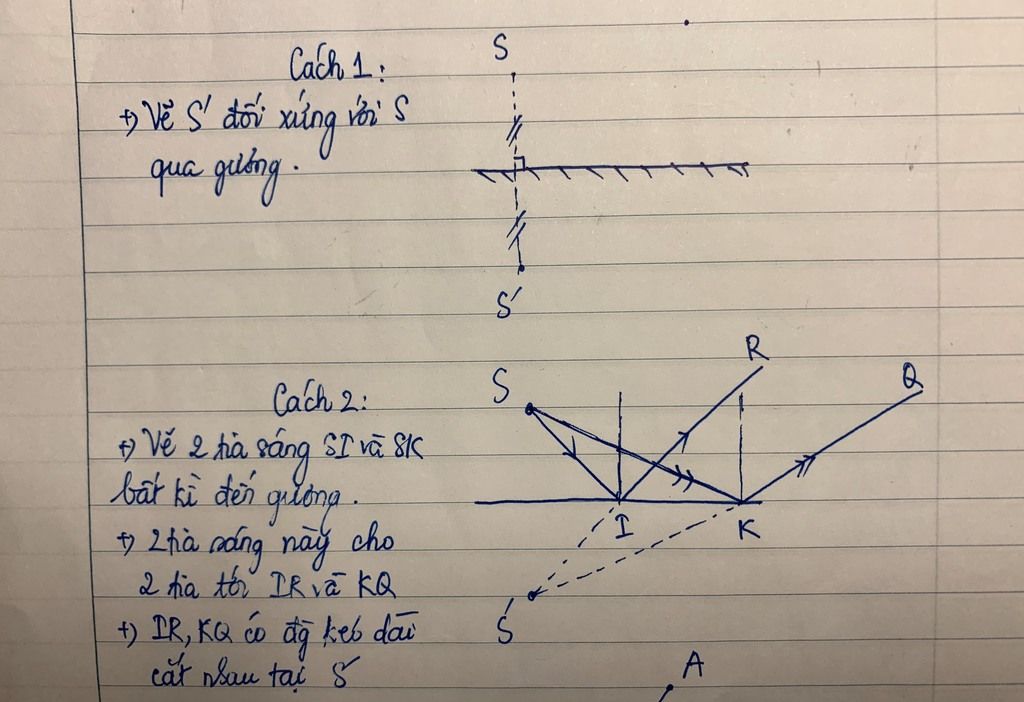 Cách 1:
+) Vẽ S' đối xứng với S
qua gương.
S
S'
Cách 2:
+) Vẽ 2 tia sáng SI và SK
bất kì đến gương.
+) 2 tia sáng này cho
2 tia tới IR và KQ
+) IR, KQ có đg kéo dài
cắt nhau tại S'
S
R
Q
I
K
S'
A